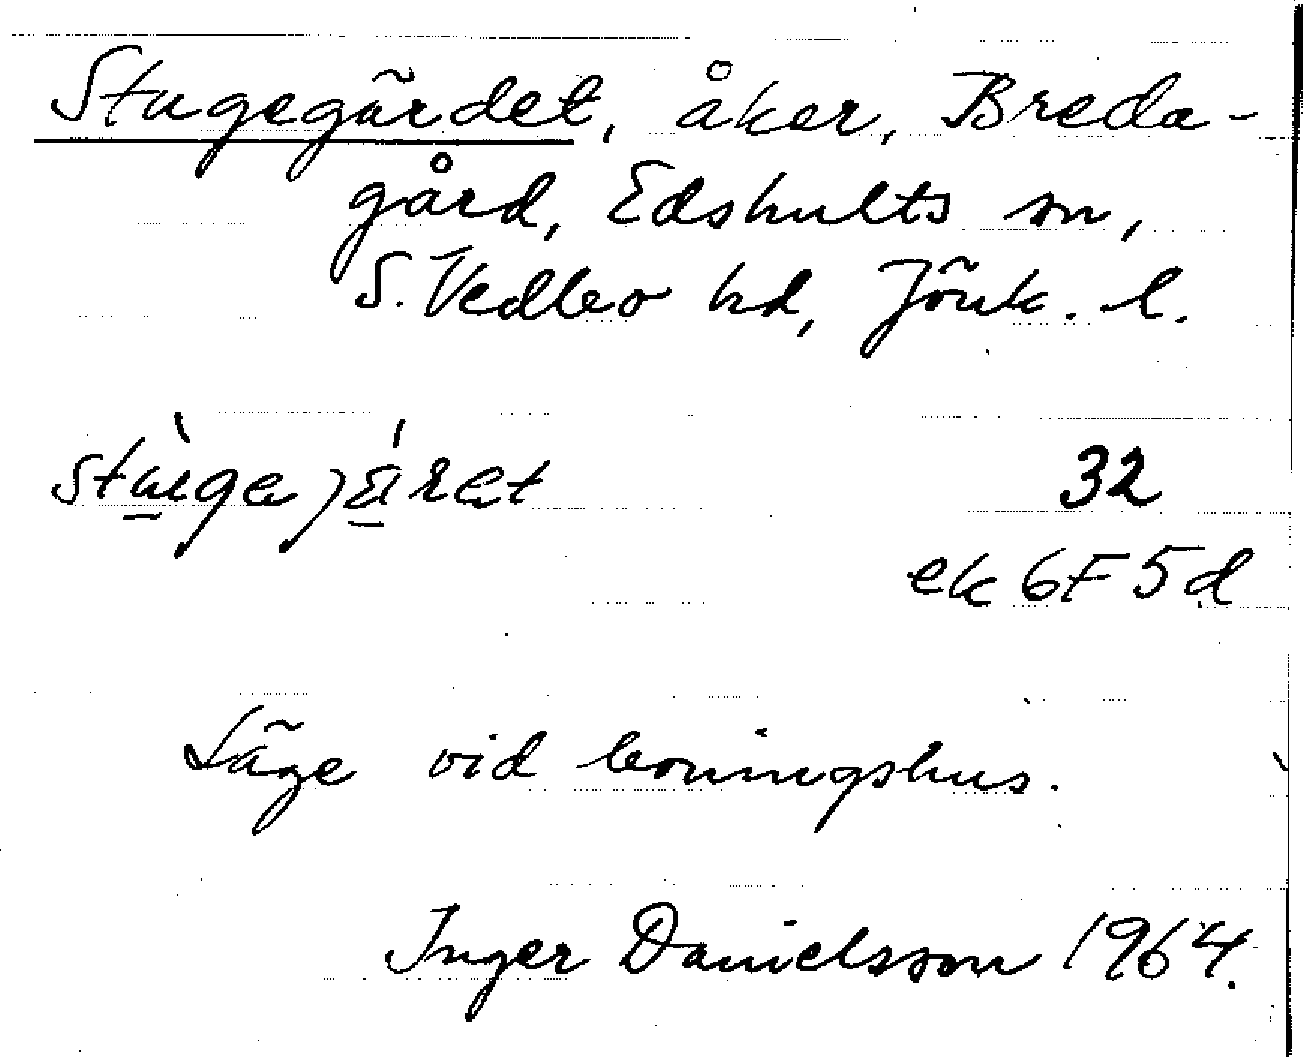 Stugegärdet, åker, Breda-
gård, Edshults sn,
S. Vedbo hd, Jönk. l.
32
ek 6F5d
Läge vid boningshus.
Inger Danielsson 1964.